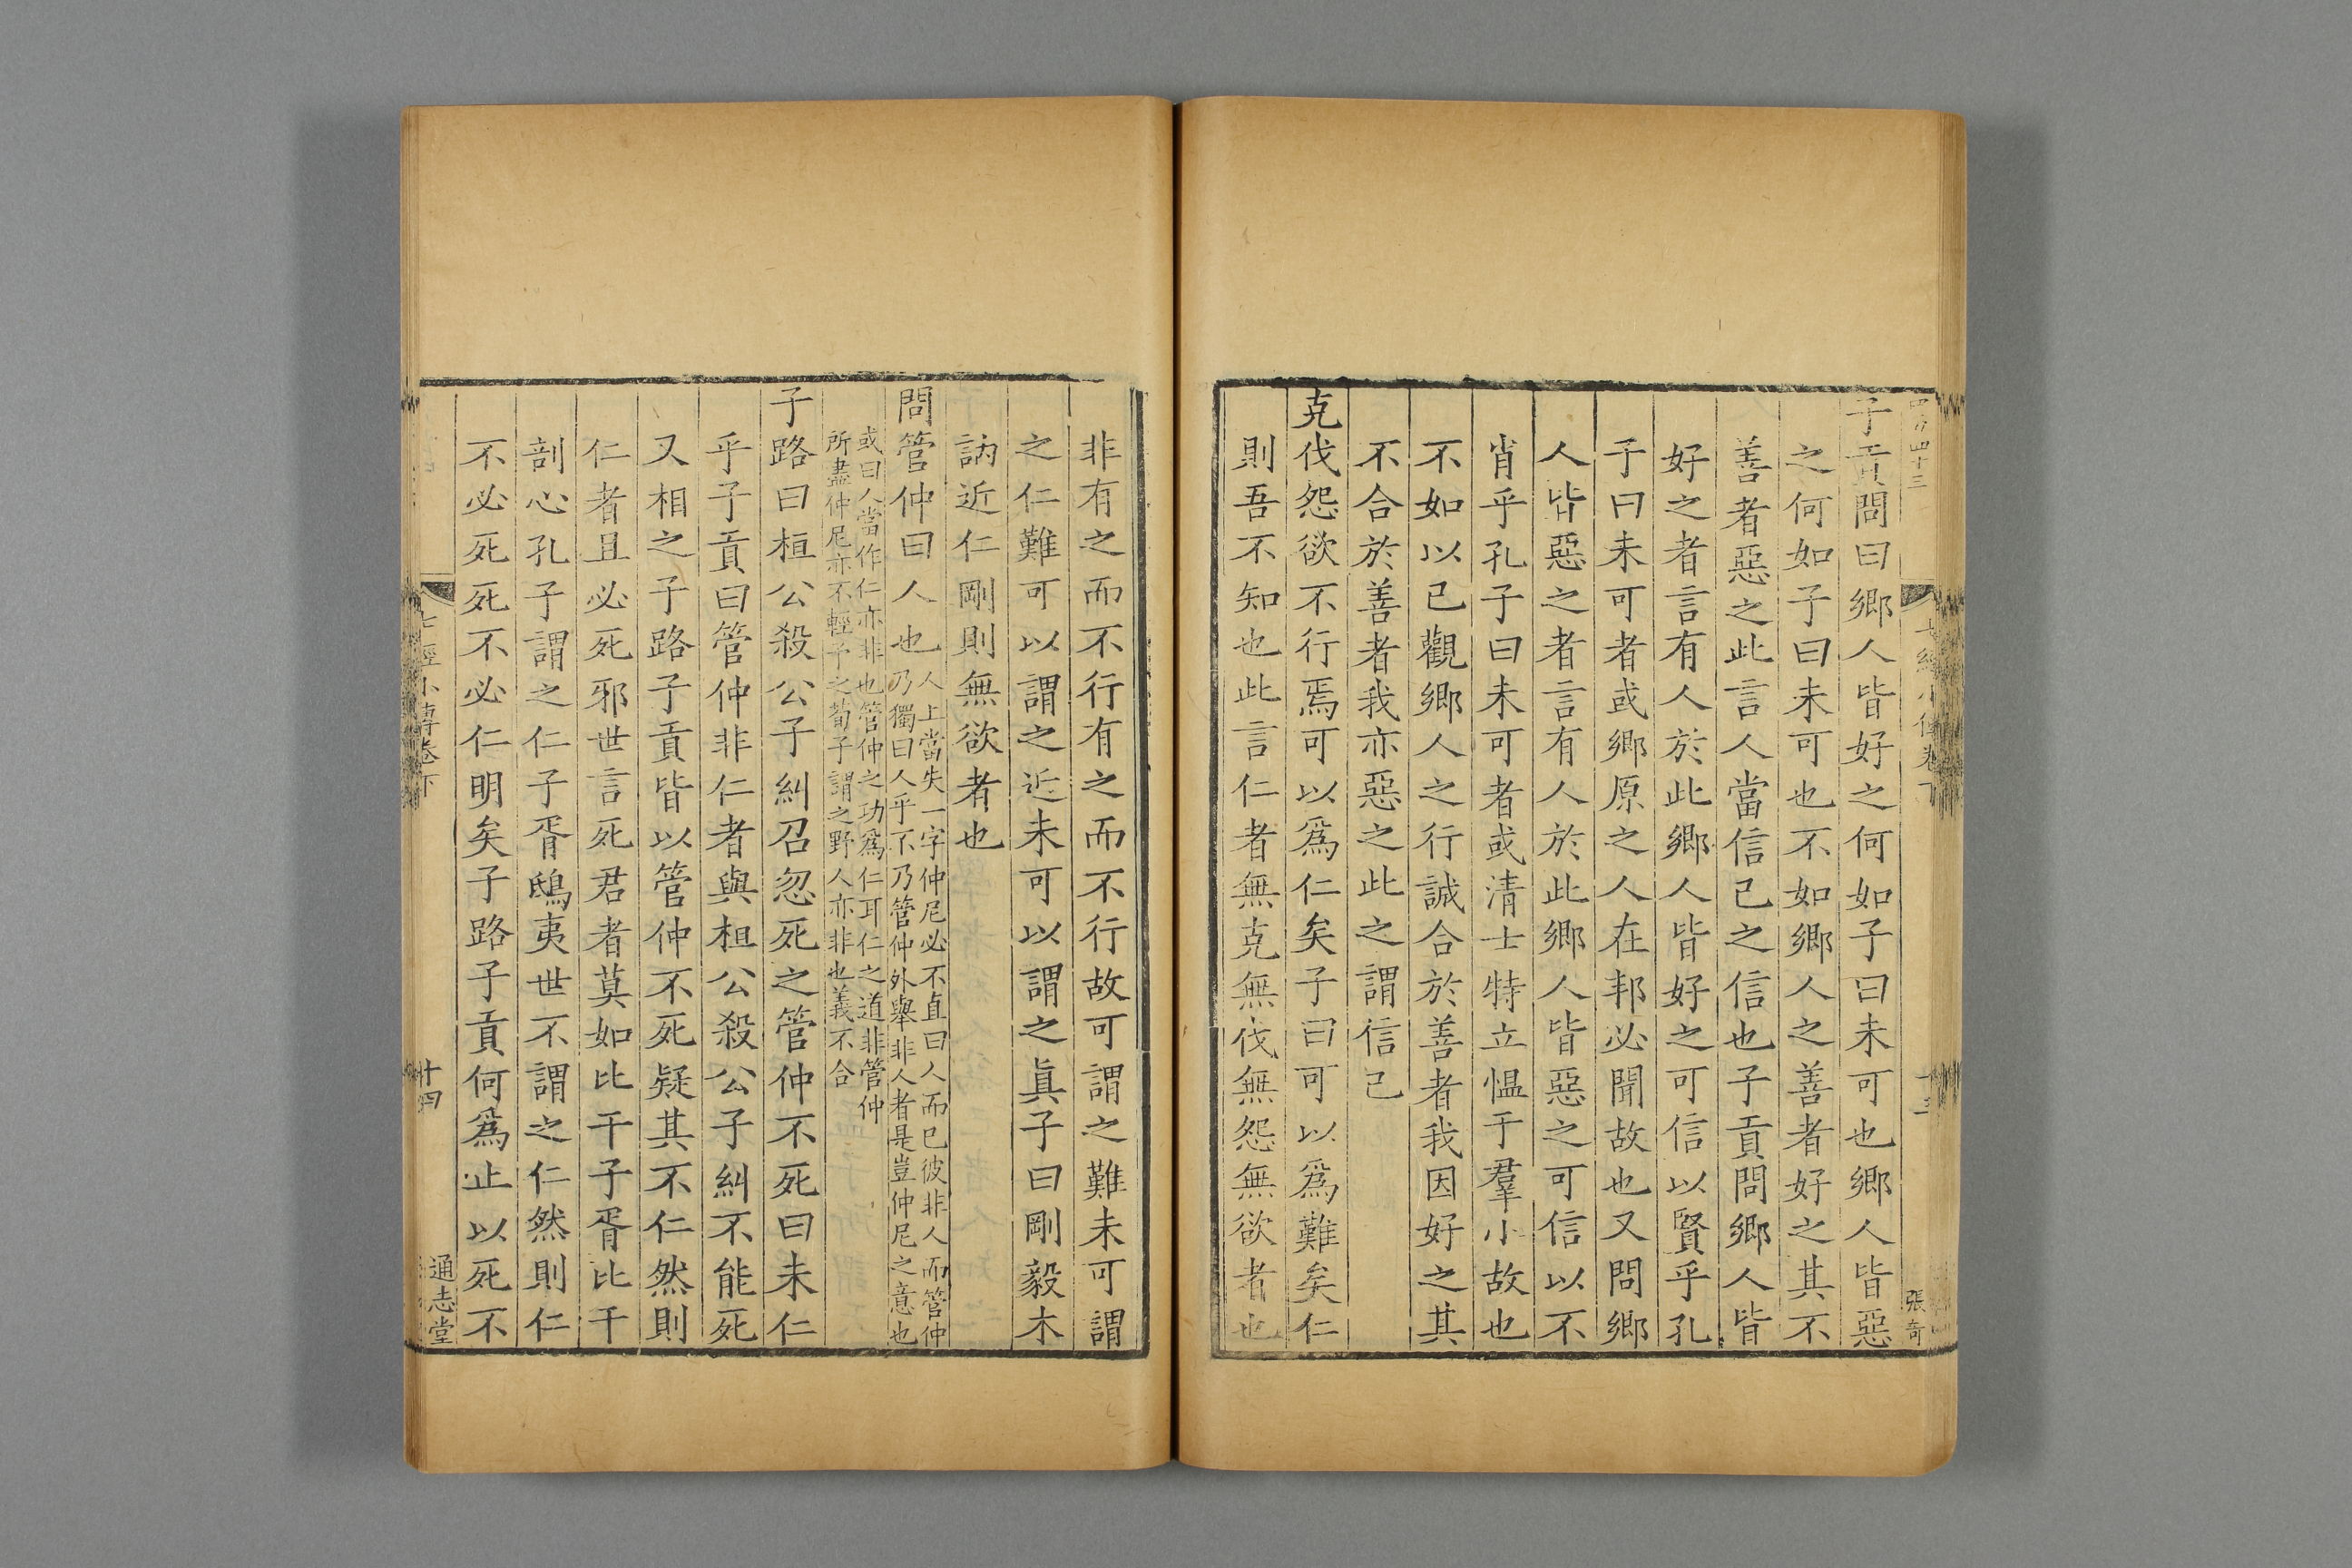 四百四十三
七經小傳卷下
張奇
子貢問曰鄉人皆好之何如子曰未可也鄉人皆惡
之何如子曰未可也不如鄉人之善者好之其不
善者惡之此言人當信己之信也子貢問鄉人皆
好之者言有人於此鄉人皆好之可信以賢乎孔
子曰未可者或鄉原之人在邦必聞故也又問鄉
人皆惡之者言有人於此鄉人皆惡之可信以不
肖乎孔子曰未可者或清士特立慍于羣小故也
不如以己觀鄉人之行誠合於善者我因好之其
不合於善者我亦惡之此之謂信己
克伐怨欲不行焉可以爲仁矣子曰可以爲難矣仁
則吾不知也此言仁者無克無伐無怨無欲者也
非有之而不行有之而不行故可謂之難未可謂
之仁難可以謂之近未可以謂之眞子曰剛毅木
訥近仁剛則無欲者也
問管仲曰人也人上當失一字仲尼必不直曰人而已彼非人而管仲
乃獨曰人乎不乃管仲外舉非人者是豈仲尼之意也
或曰人當作仁亦非也管仲之功爲仁耳仁之道非管仲
所盡仲尼亦不輕予之荀子謂之野人亦非也義不合
子路曰桓公殺公子糾召忽死之管仲不死曰未仁
乎子貢曰管仲非仁者與桓公殺公子糾不能死
又相之子路子貢皆以管仲不死疑其不仁然則
仁者且必死邪世言死君者莫如比干子胥比干
剖心孔子謂之仁子胥鴟夷世不謂之仁然則仁
不必死死不必仁明矣子路子貢何爲止以死不
七經小傳卷下
十四
通志堂